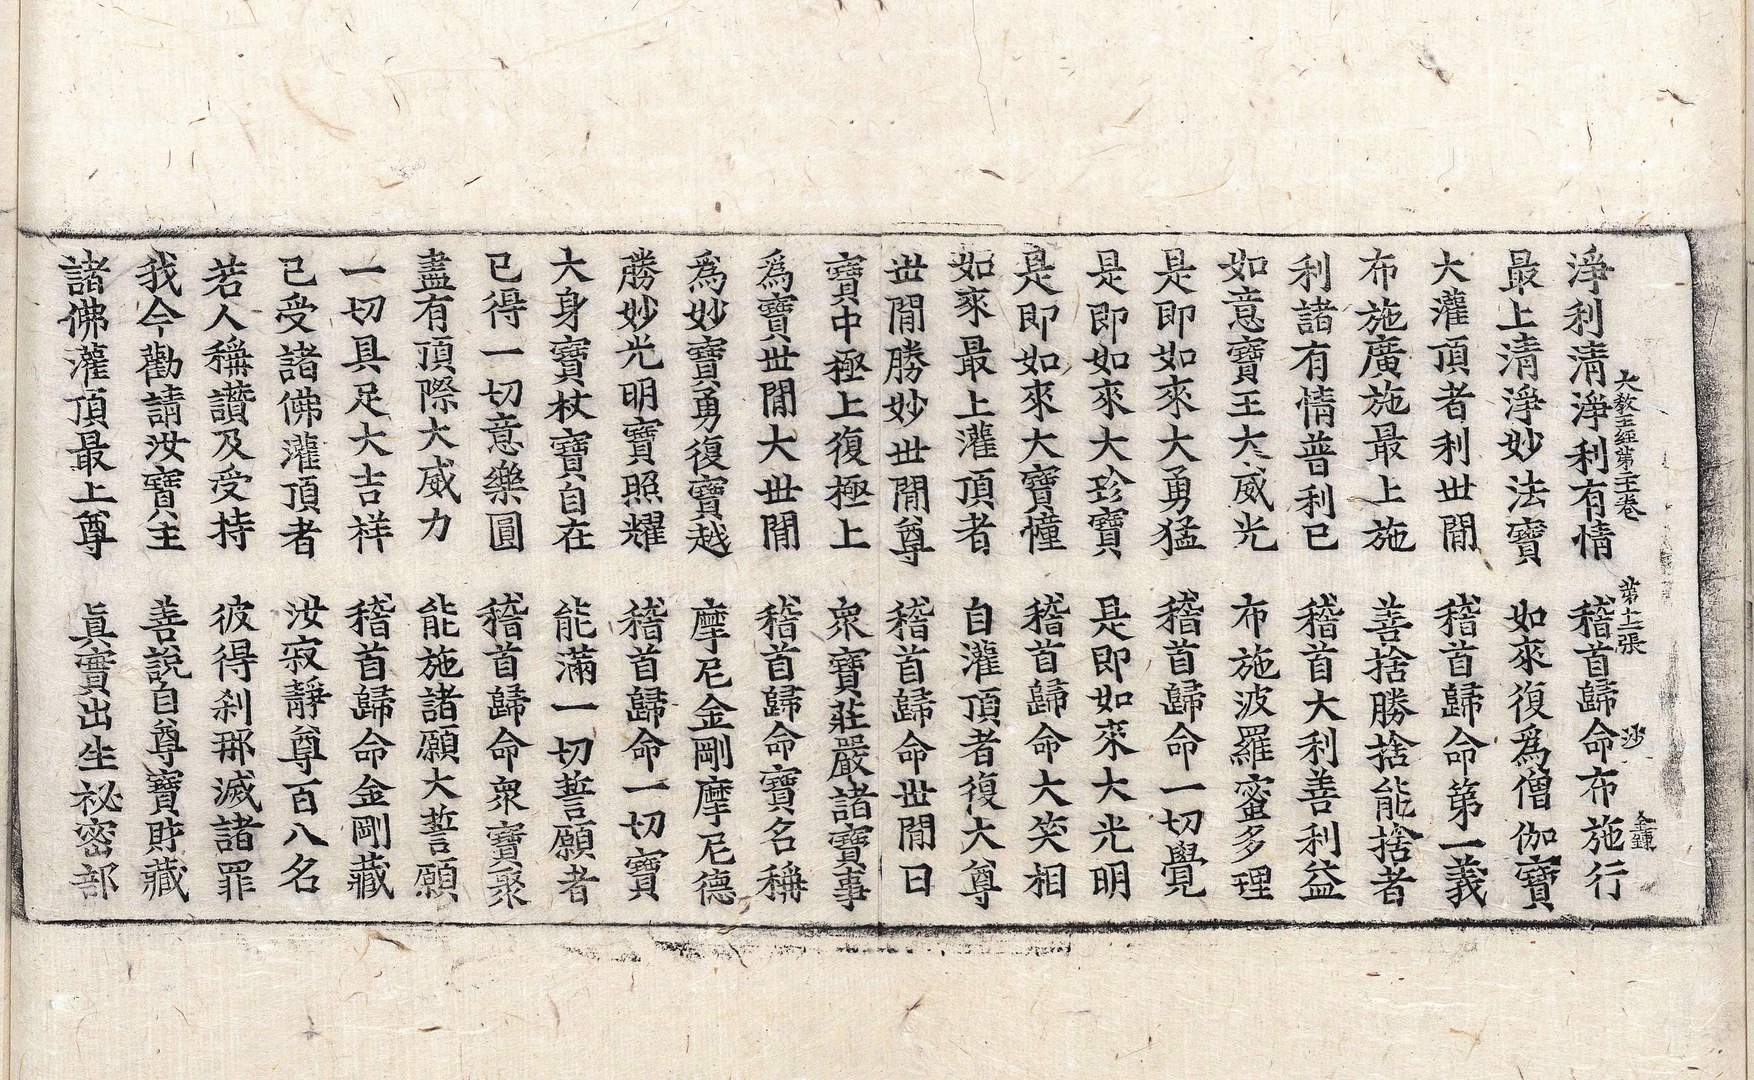 大教王經第二十卷　第十二張　沙　金鍾
淨利淸淨利有情　稽首歸命布施行
最上淸淨妙法寶　如來復爲僧伽寶
大灌頂者利世閒　稽首歸命第一義
布施廣施最上施　善捨勝捨能捨者
利諸有情普利已　稽首大利善利益
如意寶王大威光　布施波羅蜜多理
是即如來大勇猛　稽首歸命一切覺
是即如來大珍寶　是即如來大光明
是即如來大寶幢　稽首歸命大笑相
如來最上灌頂者　自灌頂者復大尊
世閒勝妙世閒尊　稽首歸命世閒日
寶中極上復極上　衆寶莊嚴諸寶事
爲寶世閒大世閒　稽首歸命寶名稱
爲妙寶勇復寶越　摩尼金剛摩尼德
勝妙光明寶照耀　稽首歸命一切寶
大身寶杖寶自在　能滿一切誓願者
已得一切意樂圓　稽首歸命衆寶聚
盡有頂際大威力　能施諸願大誓願
一切具足大吉祥　稽首歸命金剛藏
已受諸佛灌頂者　汝寂靜尊百八名
若人稱讚及受持　彼得刹那滅諸罪
我今勸請汝寶主　善說自尊寶貯藏
諸佛灌頂最上尊　眞實出生祕密部